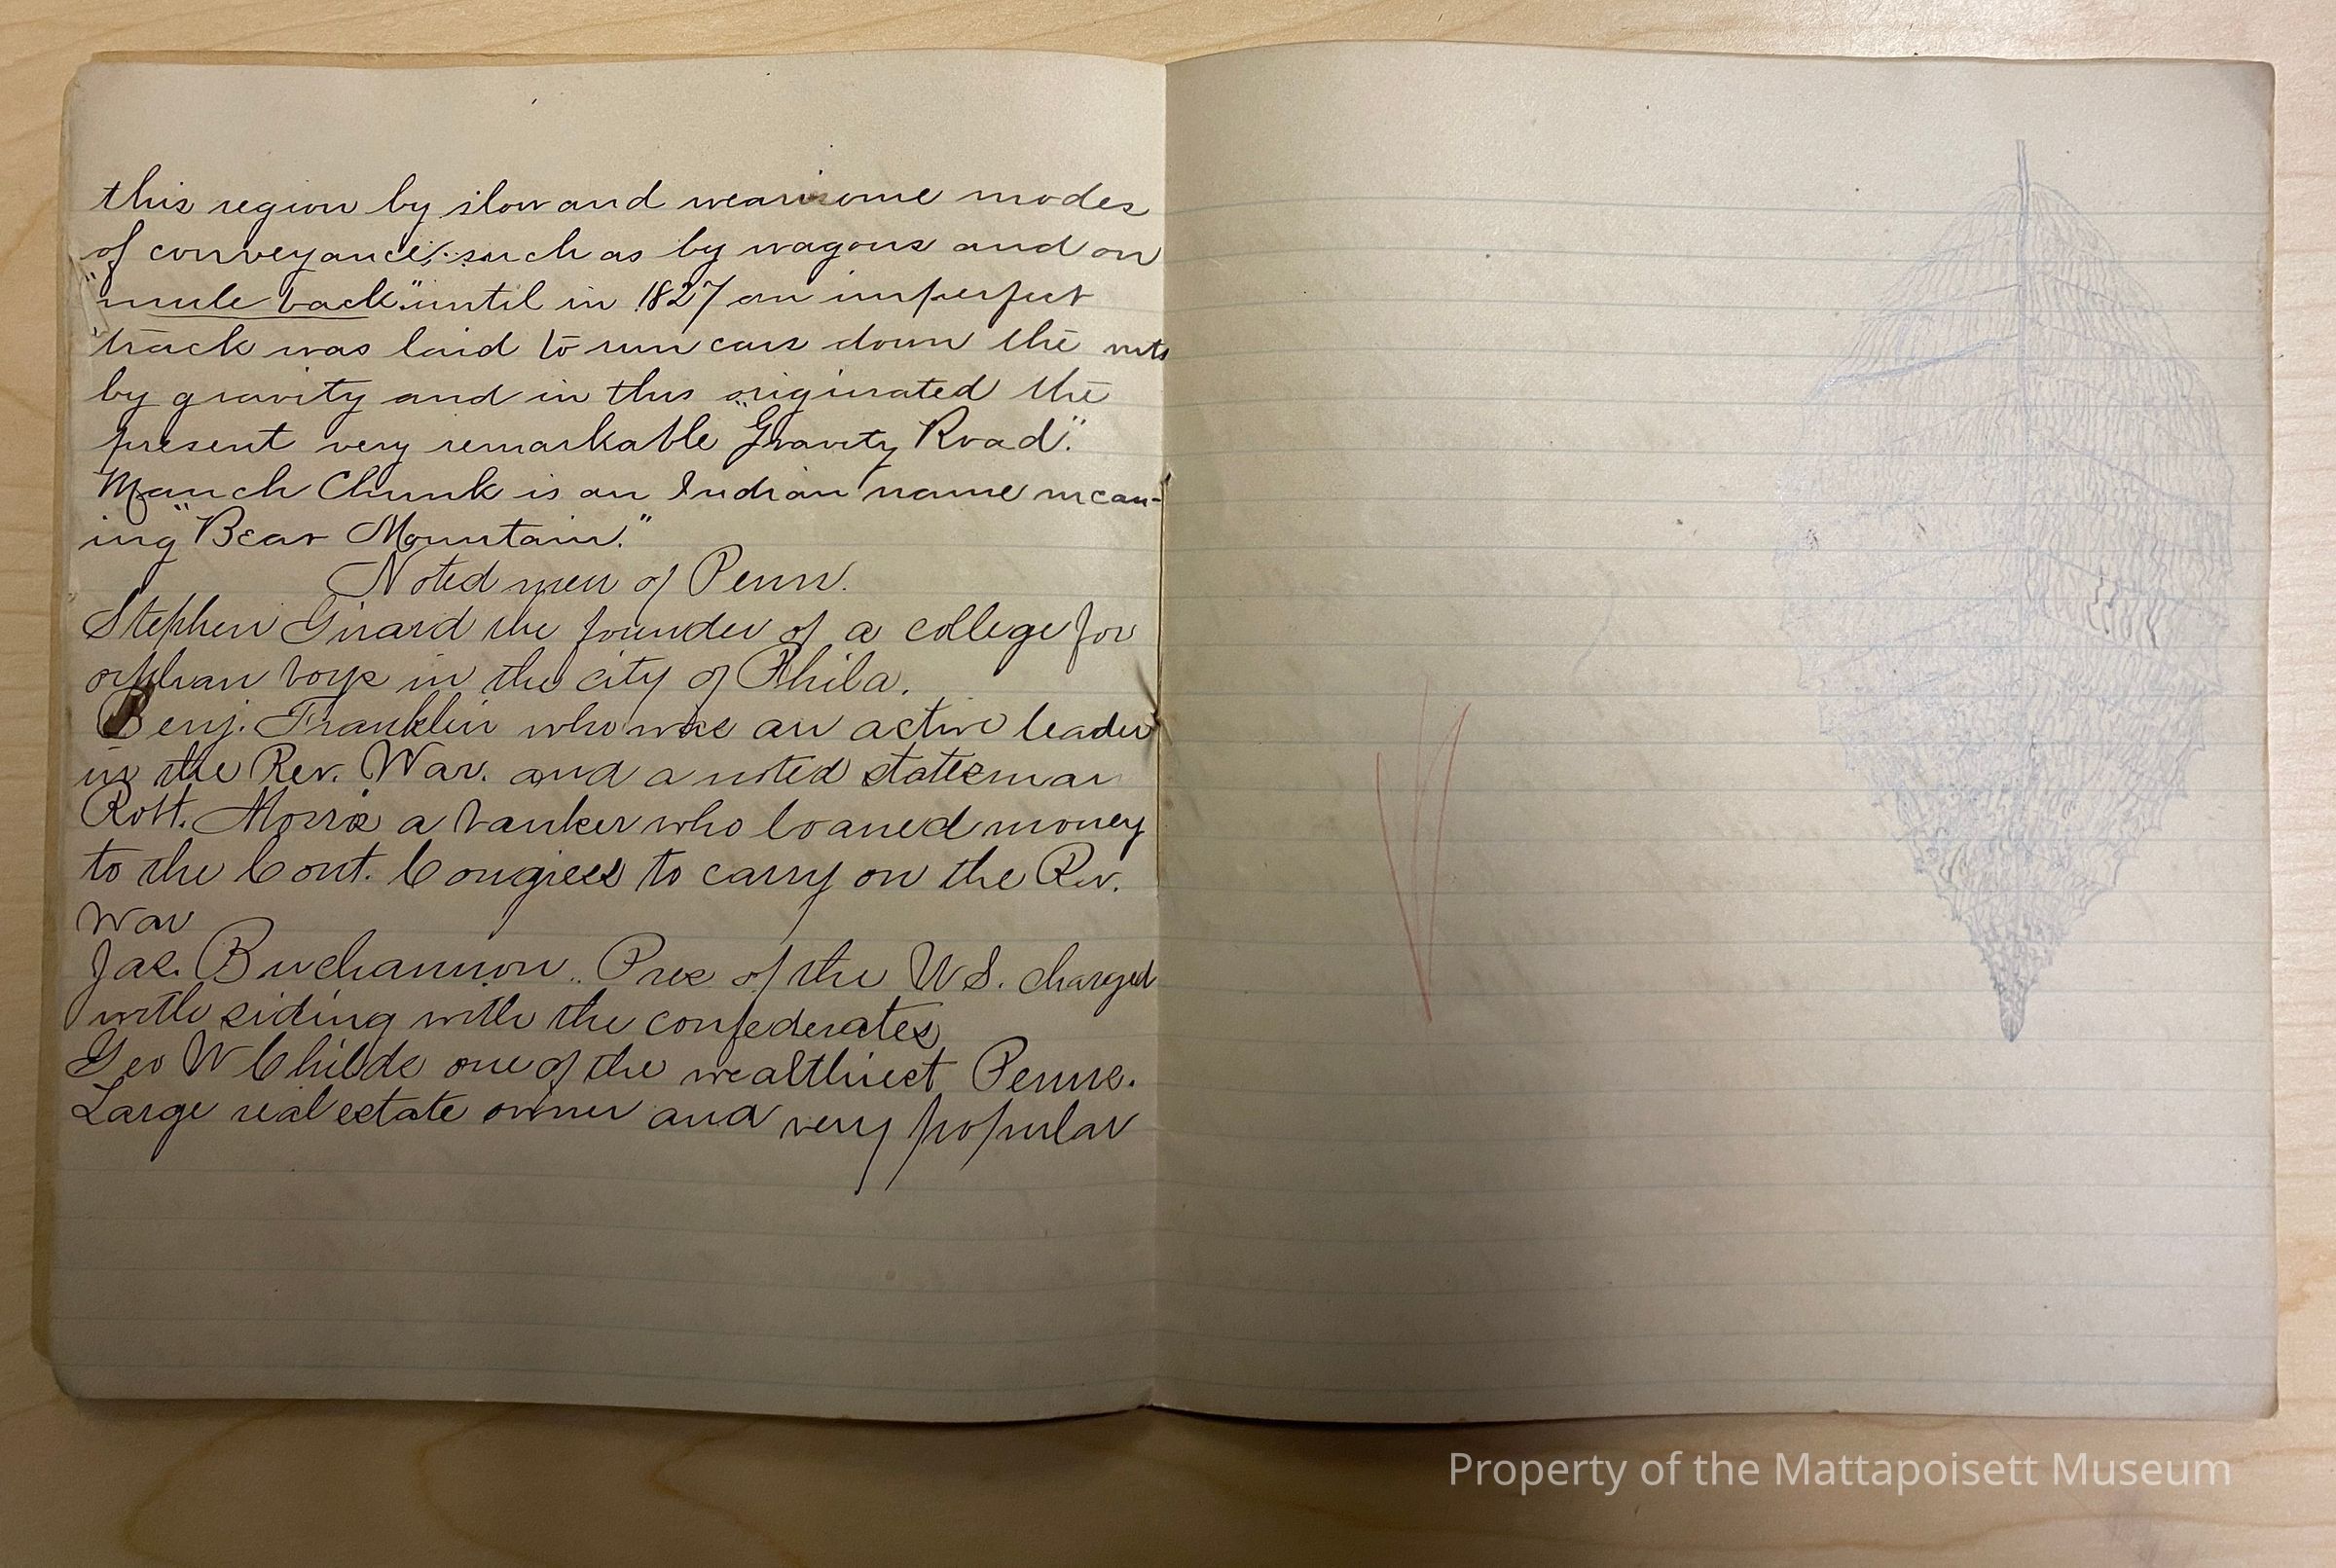 this region by slow and wearisome modes
of conveyance, such as by wagons and on
"mule back." until in 1827 an imperfect
track was laid to run cars down the mts
by gravity and in this originated the
present very remarkable "Gravity Road".
Mauch Chunk is an Indian name mean-
ing "Bear Mountain."
Noted men of Penn.
Stephen Girard the founder of a college for
orphan boys in the city of Phila.
Benj. Franklin who was an active leader
in the Rev. War. and a noted statesman
Robt. Morris a banker who loaned money
to the Cont. Congress to carry on the Rev.
War
Jas. Buchannon.. Pres of the U S. charged
with siding with the confederates
Geo W Childs one of the wealthiest Penns.
Large real estate owner and very popular
Property of the Mattapoisett Museum